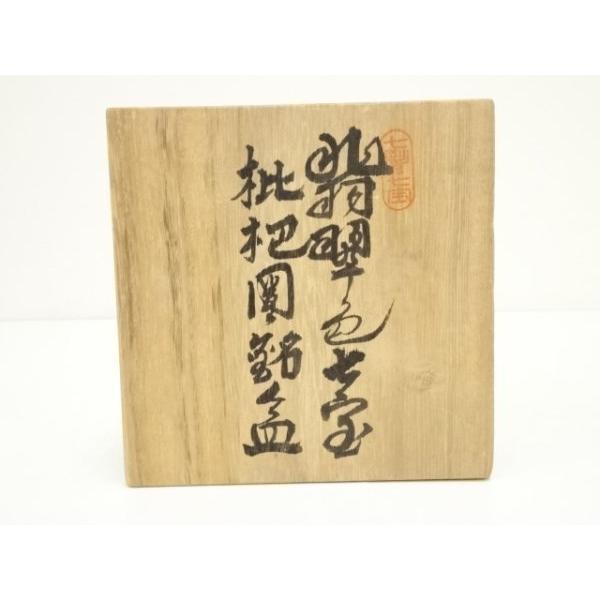 翡翠色七宝
枇杷圖銘々皿